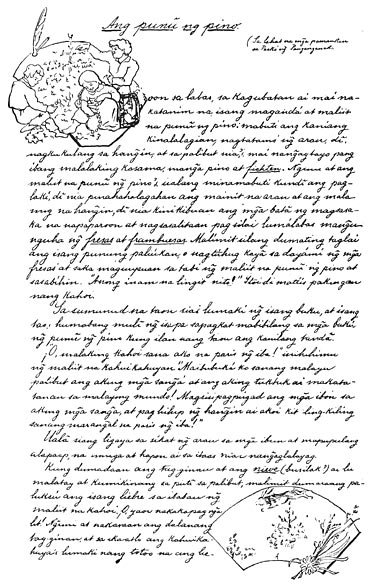 Ang punũ ng pino.
(Sa lahat na mga pamankin
sa Paskó ng Pangingenad.
Doon sa labas, sa kagubatan ai mai na-
katanim na isang magandá at maliit
na punũ ng pino; mabuti ang kaniang
kinalalagian, nagtatamó ng arau, di
nagkukulang sa hangin, at sa palibut niá, mai nangagtayo pang
ibang malalaking kasama, manga pino at fichten. Ngunì at ang
maliit na punũ ng pino'i, ualang minamabuti kundi ang pag-
laki, di nia pinahahalagahan ang mainit na arau at ang mala-
mig na hangin, di nia kinikibuan ang mga batà ng magsasa-
ka na napaparoon at nagsasalitaan pag silai lumalabas manguha
nguha ng fresas at frambuesas. Malimit silang dumating taglai
ang isang punung palaiukan, o nagtuhug kayá sa dayami ng mga
fresas at saka mag-uupuan sa tabi ng maliit na punũ ng pino at
sasabihin: "Anong inam na lingit nito!" Itó'i di matiis pakingan
nang kahoi.
Sa sumunud na taon siai lumaki ng isang bukũ, at isang
taó, humabang muli ng isa pa sapagkat mabibilang sa mga bukũ
ng punũ ng pino kung ilan nang taon ang kanilang tandâ.
"O, malaking kahoi sana akó na paris ng iba!" inihihimu
ng maliit na kahui kahuyan. "Maibubuka ko sanang malayu
palibut ang aking mga sanga at ang aking tuktuk ai makata-
tanau sa malayong mundo! Magsisipagpugad ang mga ibon sa
aking mga sanga, at pag hihip ng hangin ai akoi kit ling-kiling
sanang marangal na paris ng iba!"
Ualâ siang ligaya sa sikat ng arau sa mga ibun at mapupulang
alapaap, na umaga at hapon ai sa itaas niai nangaglalayag.
Kung dumadaan ang tag-ginau at ang nieve (busilak?) ai lu-
malatag at kumikinang sa puti sa palibut, malimit dumarang pa-
luksu ang isang liebre sa ibabau ng
maliit na kahoi. O, yaoi nakakapag nga-
lit! Ngunì at nakaraan ang dalauang
tag ginau, at sa ikatlo ang kahuika-
huyai lumaki nang totoo na ang lie-